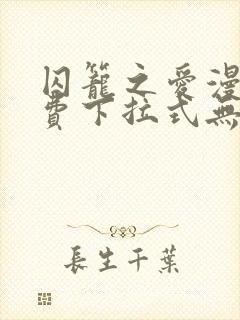 囚籠之愛漫
費下拉式無
長生千葉